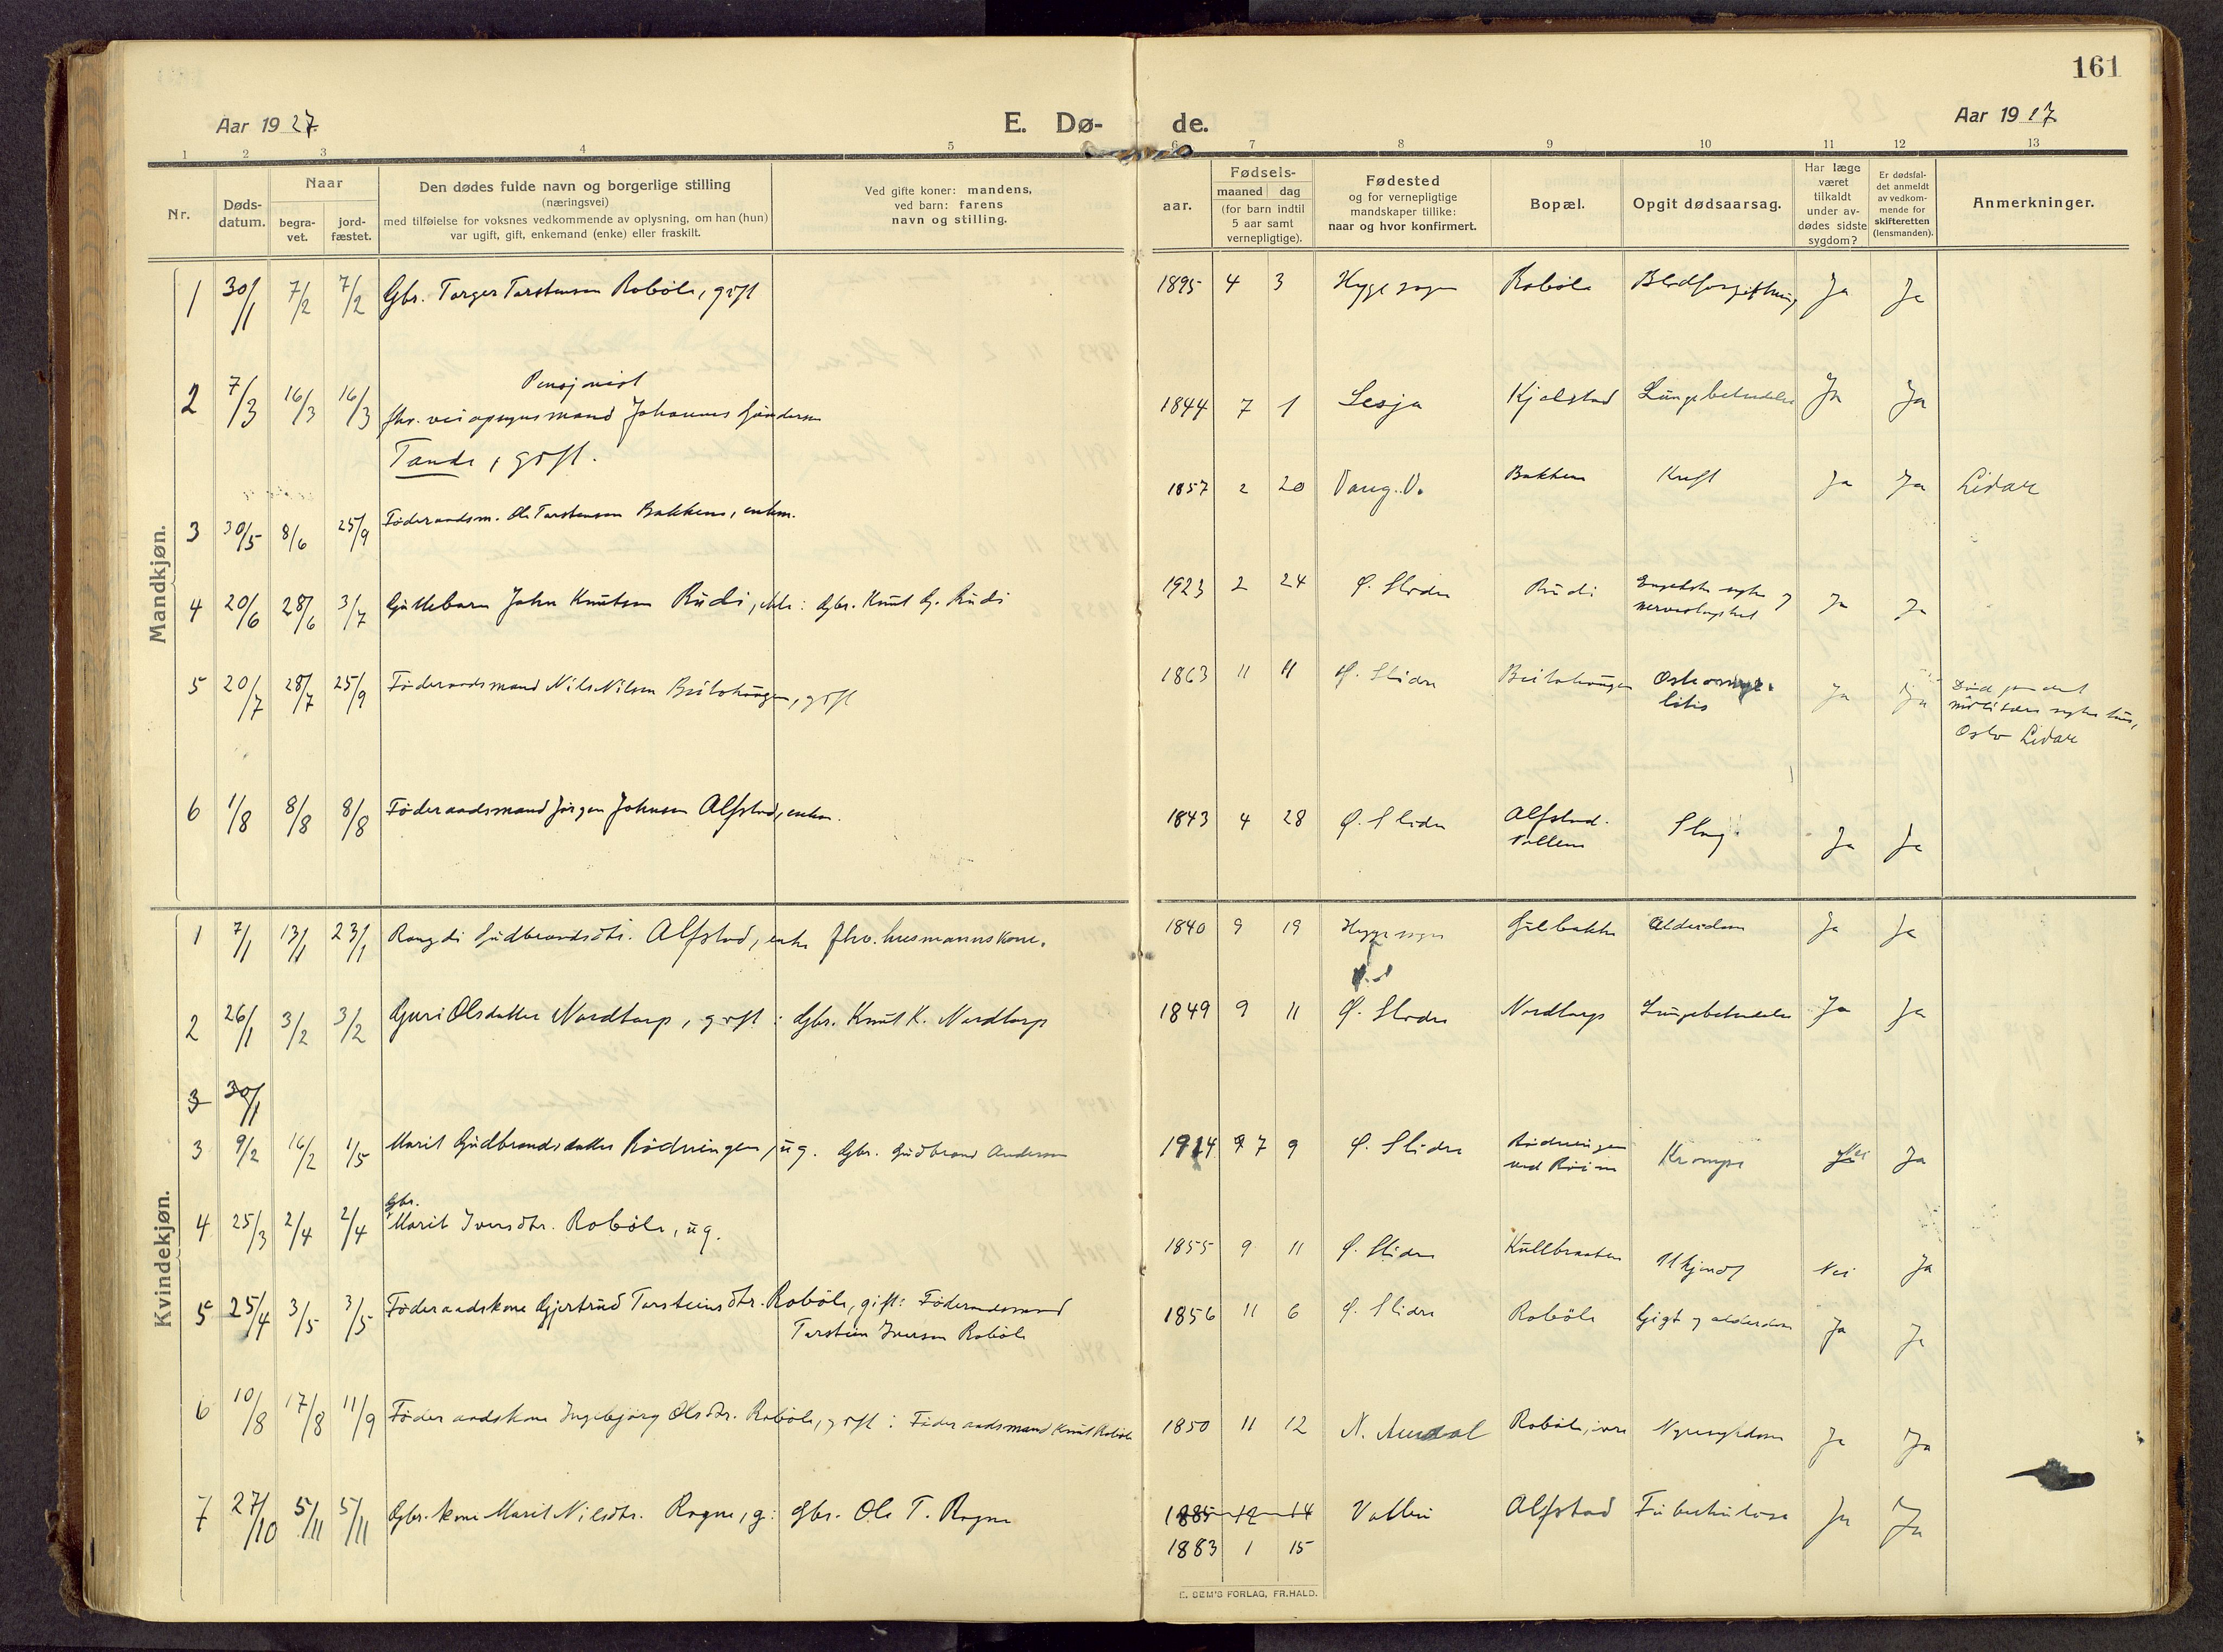 161
Aar 1927.
E. Dø-
de.
Aar 1927
1 2 3 4 5 6 7 8 9 10 11 12 13
Nr.
Døds-
datum.
Naar
begra-
vet.
jord-
fæstet.
Den dødes fulde navn og borgerlige stilling
(næringsvei)
med tilføielse for voksnes vedkommende av oplysning, om han (hun)
var ugift, gift, enkemand (enke) eller fraskilt.
Ved gifte koner: mandens,
ved barn: farens
navn og stilling.
aar.
Fødsels-
maaned dag
(for barn indtil
5 aar samt
vernepligtige).
Fødested
og for vernepligtige
mandskaper tillike:
naar og hvor konfirmert.
Bopæl.
Opgit dødsaarsag.
Har læge
været
tilkaldt
under av-
dødes sidste
sygdom?
Er dødsfal-
det anmeldt
av vedkom-
mende for
skifteretten
(lensmanden).
Anmerkninger.
Mandkjøn.
1 30/1 7/2 7/2 Gbr. Torger Torstensen Robøle, gift 1895 4 3 Hegge sogn Robøle Blodforgiftning Ja Ja
Pensjonist
2 7/3 16/3 16/3 fhv. veiopsynsmand Johannes 1844 7 1 Lesja Kjølstad Lungebetendelse Ja Ja
Tande, gift.
3 30/5 8/6 25/9 Føderaadsm. Ole Torstensen Bakkene, enkem. 1857 2 20 Vang. V. Bakkene Kreft Ja Ja Lidar
4 20/6 28/6 3/7 Guttebarn John Knutsen Rudi, ekte: Gbr. Knut G. Rudi 1923 2 24 Ø. Slidre Rudi Engelske syke og
Ja Ja
5 20/7 28/7 25/9 Føderaadsmand Nils Nilsen Beitohaugen, gift 1863 11 11 Ø. Slidre Beitohaugen Osteomye-
litis Ja Ja Død paa det
militære sykehus,
Oslo Lidar
6 1/8 8/8 8/8 Føderaadsmand Jørgen Johnsen Alfstad, enkem. 1843 4 28 Ø. Slidre Alfstad.
Vollene Slag Ja Ja
Kvindekjøn.
1 7/1 13/1 23/1 Rangdi Gudbrandsdtr. Alfstad, enke fhv. husmannskone. 1840 9 19 Hegge sogn Gulbakke Alderdom Ja Ja
2 26/1 3/2 3/2 Guri Olsdatter Nordtorp, gift: Gbr. Knut K. Nordtorp 1849 9 11 Ø. Slidre Nordtorp Lungebetendelse Ja Ja
3 30/1
3 9/2 16/2 1/5 Marit Gudbrandsdatter Rødningen, ug. Gbr. Gudbrand Andersen 1914 7 9 Ø. Slidre Rødningen
Krampe Nei Ja
Gbr.
4 25/3 2/4 2/4 Marit Iversdtr. Robøle, ug. 1855 9 11 Ø. Slidre Kullbraaten Ukjendt Nei Ja
5 25/4 3/5 3/5 Føderaadskone Gjertrud Torsteinsdtr. Robøle, gift: Føderaadsmand
Torstein Iverson Robøle 1856 11 6 Ø. Slidre Robøle Gigt og alderdom Ja Ja
6 10/8 17/8 11/9 Føderaadskone Ingebjørg Olsdtr. Robøle, gift: Føderaadsmand Knut Robøle 1850 11 12 N. Aurdal Robøle, øvre Nyresygdom Ja Ja
7 27/10 5/11 5/11 Gbr. kone Marit Nilsdtr. Rogne, g: Gbr. Ole T. Rogne 1885 12 14 Volbu Alfstad Tuberkulose Ja Ja
1883 1 15
E. SEM'S FORLAG, FR.HALD.